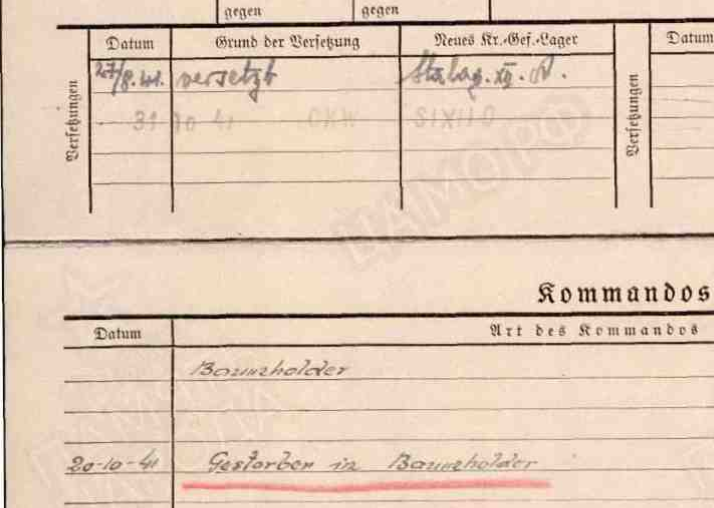 gegen gegen
Datum Grund der Versetzung Neues Kr.-Gef.-Lager Datum
Versetzungen
27/8.41. versetzt Stalag. XII. D.
31 10 41 OKW
Versetzungen
ЦАМО РФ
Kommandos
Datum Art des Kommandos
Baumholder
20-10-41 Gestorben in Baumholder